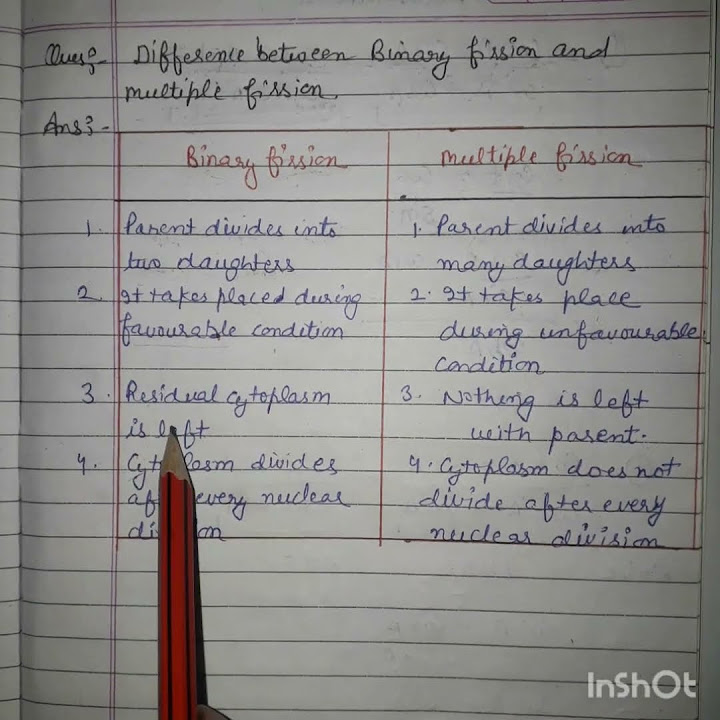 Ques:- Difference between Binary fission and
multiple fission.
Ans:-
Binary fission
multiple fission
1. Parent divides into
two daughters
1. Parent divides into
many daughters
2. It takes placed during
favourable condition
2. It takes place
during unfavourable
condition
3. Residual cytoplasm
is left
3. Nothing is left
with parent.
4. divides
every nuclear
4. Cytoplasm does not
divide after every
nuclear division
InShOt